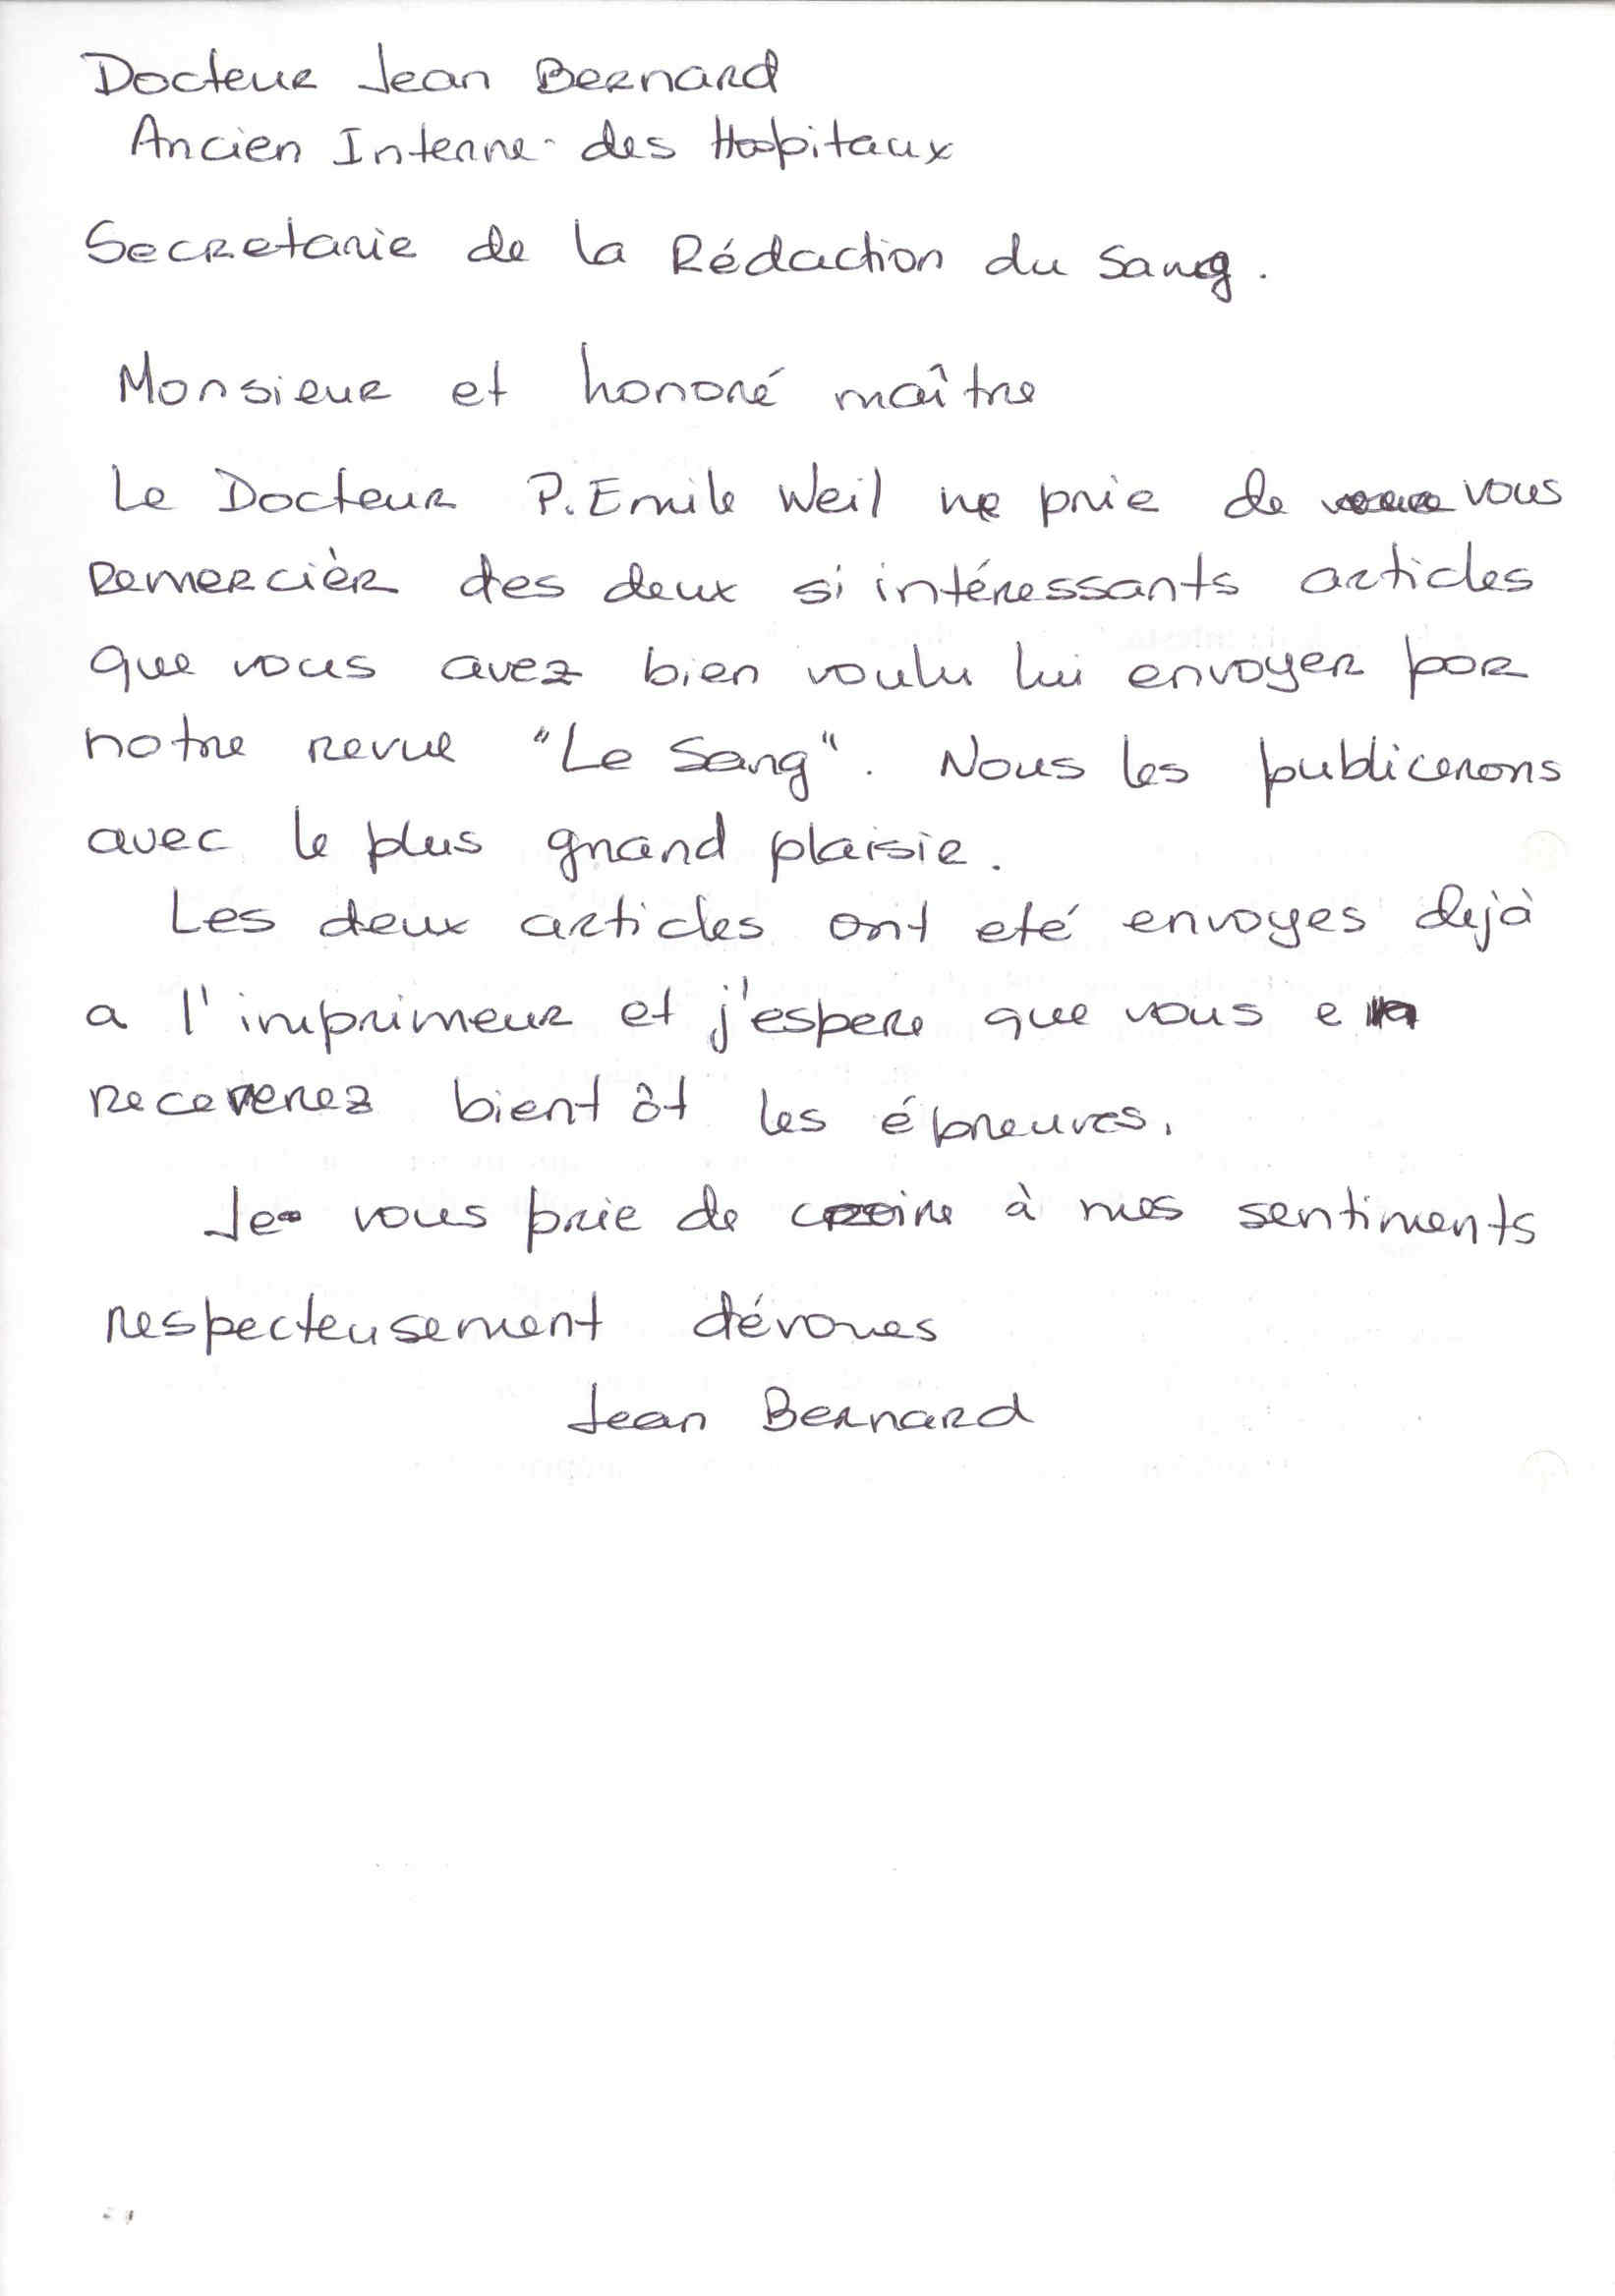 Docteur Jean Bernard
Ancien Interne des Hopitaux
Secretarie de la Rédaction du Sang.
Monsieur et honoré maître
Le Docteur P. Emile Weil me prie de vous
remercier des deux si intéressants articles
que vous avez bien voulu lui envoyer por
notre revue "Le Sang". Nous les publicerons
avec le plus grand plaisie.
Les deux articles ont eté envoyes dejà
a l'imprimeur et j'espere que vous en
receverez bientôt les épreuves.
Je vous prie de croire à mes sentiments
respecteusement dévoues
Jean Bernard